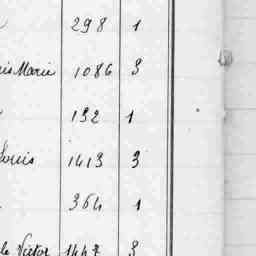 298 1
is Marie 1086 3
132 1
Louis 1413 3
364 1
Victor 1447 3